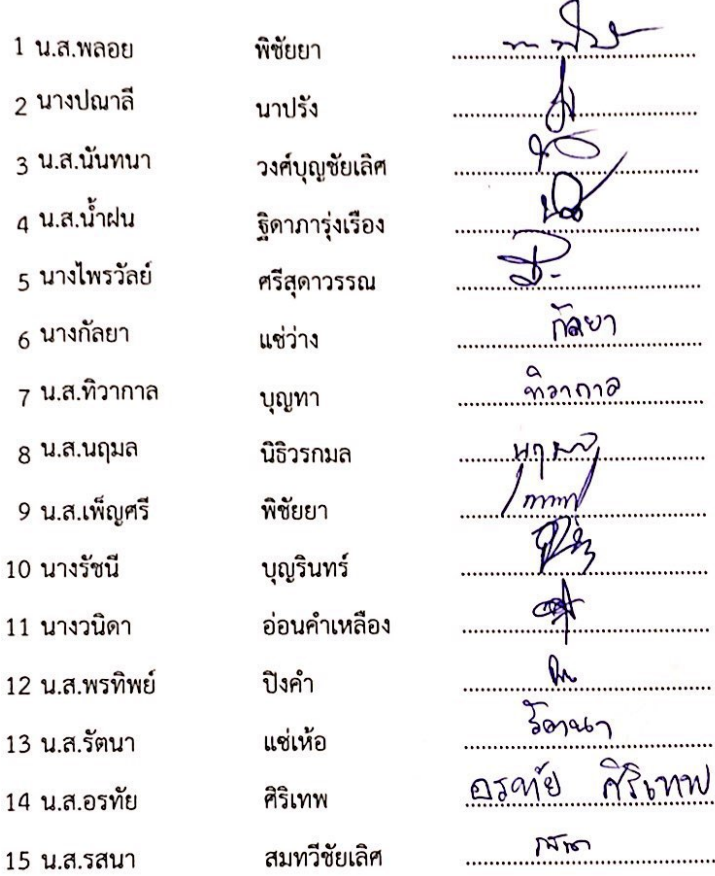 1 น.ส.พลอย พิชัยยา
2 นางปณาลี นาปรัง
3 น.ส.นันทนา วงศ์บุญชัยเลิศ
4 น.ส.น้ำฝน ฐิดาภารุ่งเรือง
5 นางไพรวัลย์ ศรีสุดาวรรณ
6 นางกัลยา แซ่ว่าง กัลยา
7 น.ส.ทิวากาล บุญทา ทิวากาล
8 น.ส.นฤมล นิธิวรกมล นฤมล
9 น.ส.เพ็ญศรี พิชัยยา
10 นางรัชนี บุญรินทร์
11 นางวนิดา อ่อนคำเหลือง
12 น.ส.พรทิพย์ ปิงคำ
13 น.ส.รัตนา แซ่เห้อ รัตนา
14 น.ส.อรทัย ศิริเทพ อรทัย ศิริเทพ
15 น.ส.รสนา สมทวีชัยเลิศ รสนา